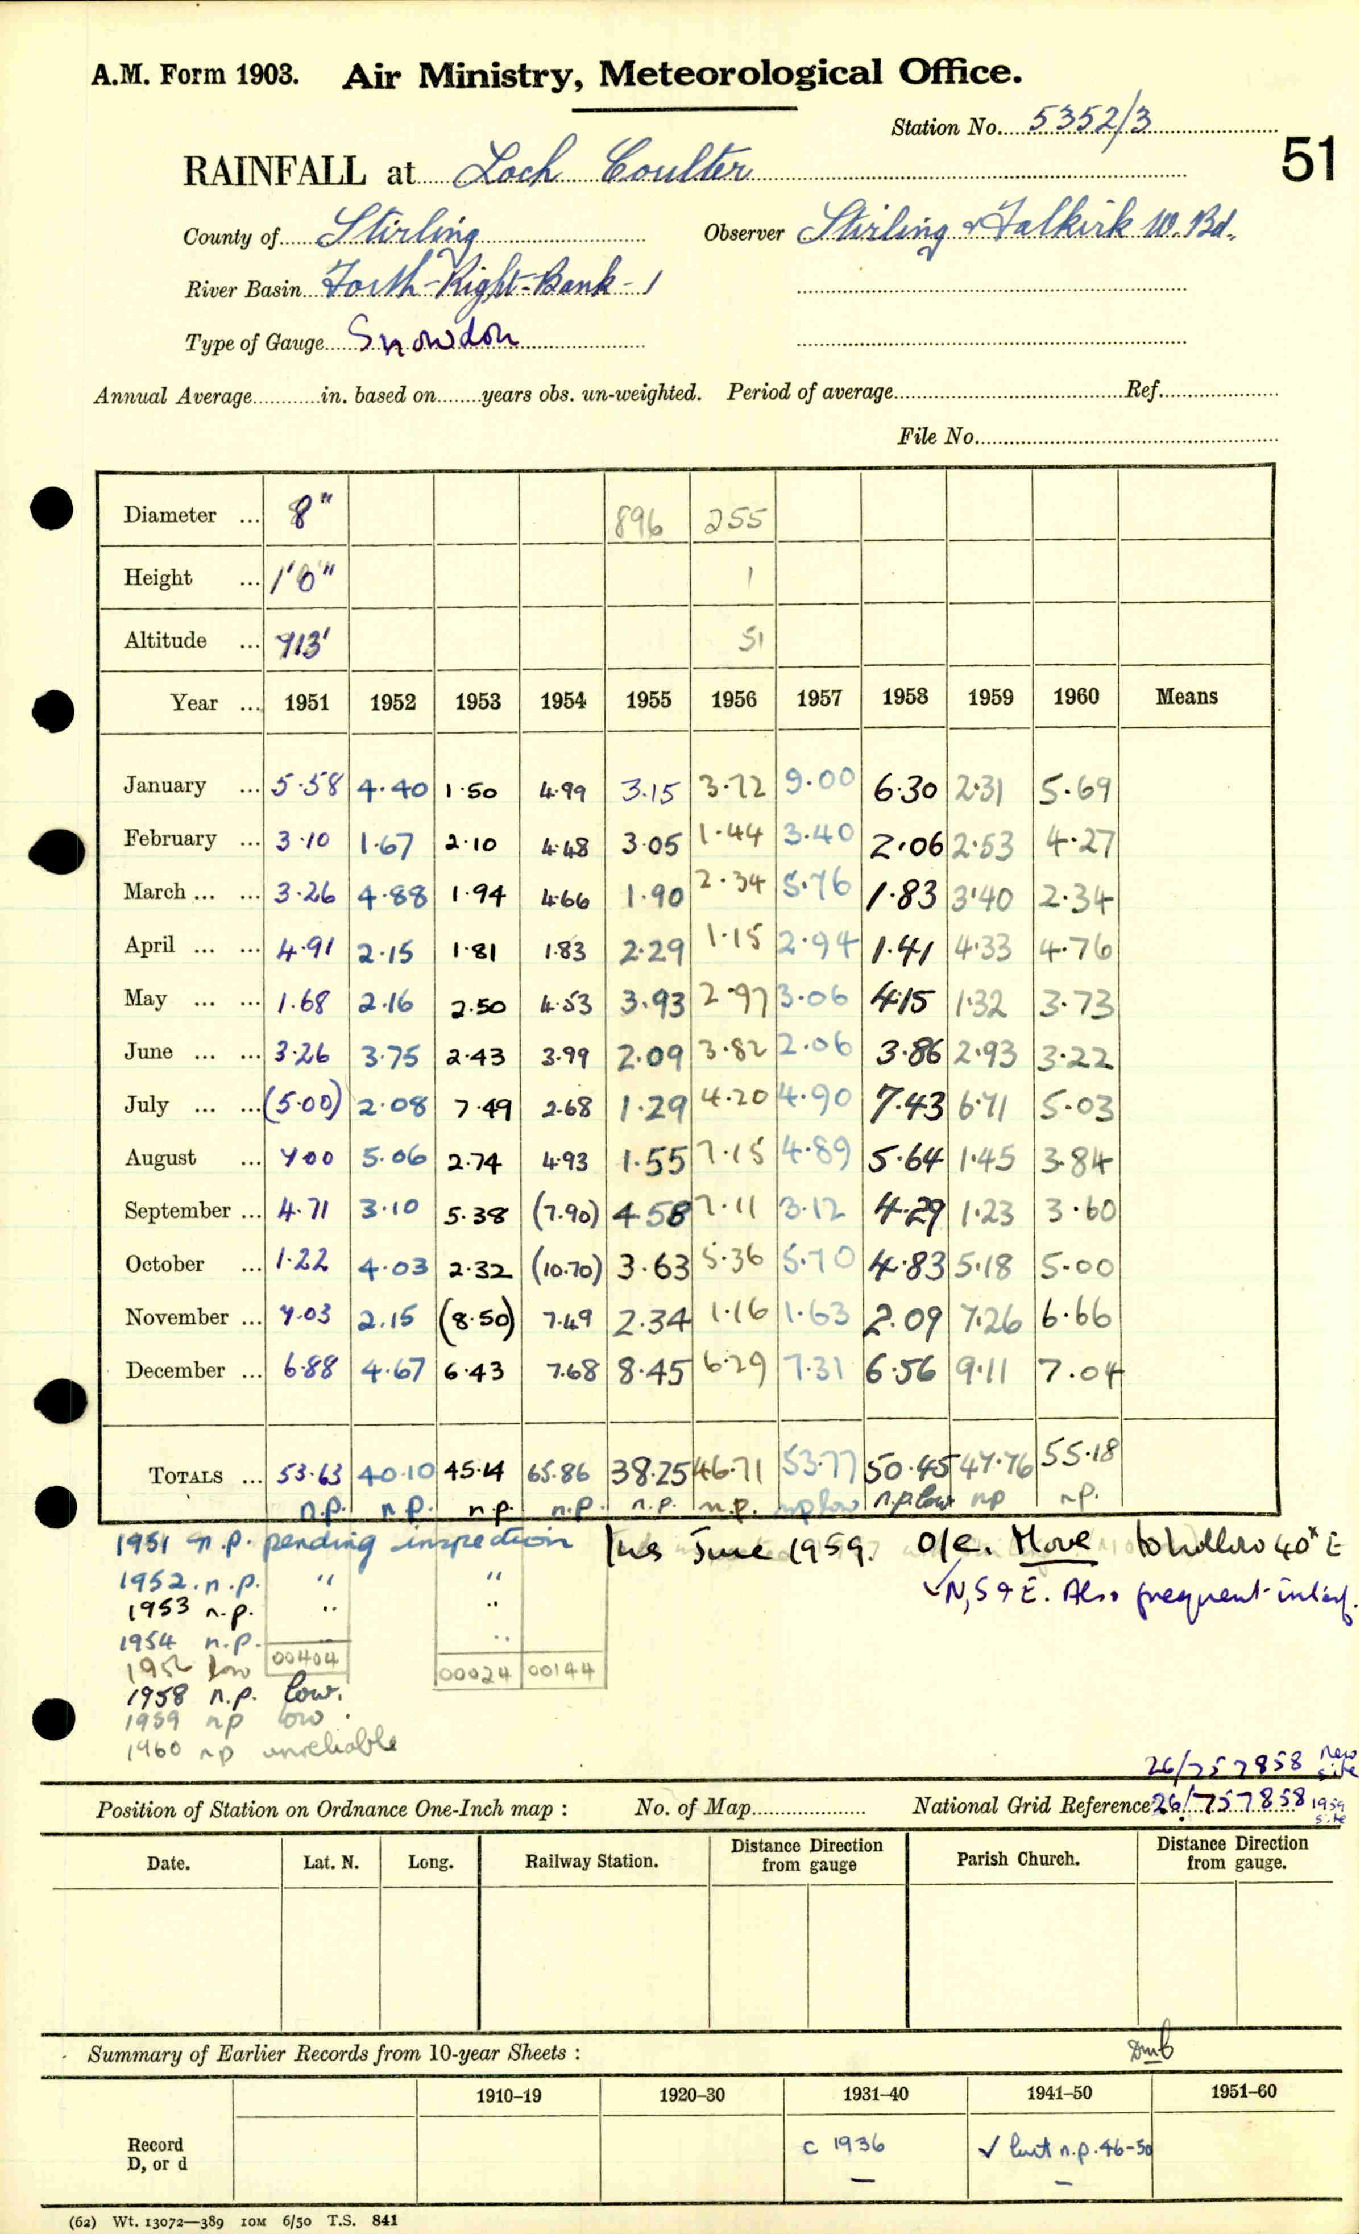 A.M. Form 1903. Air Ministry, Meteorological Office.
Station No. 5352/3
51
RAINFALL at Loch Coulter
County of Stirling Observer Stirling & Falkirk W. Bd.
River Basin Forth-Right-Bank-1
Type of Gauge Snowdon
Annual Average in. based on years obs. un-weighted. Period of average Ref.
File No.
Diameter ... 8" 896 255
Height ... 1'0" 1
Altitude ... 913' 51
Year ... 1951 1952 1953 1954 1955 1956 1957 1958 1959 1960 Means
January ... 5.58 4.40 1.50 4.99 3.15 3.72 9.00 6.30 2.31 5.69
February ... 3.10 1.67 2.10 4.48 3.05 1.44 3.40 2.06 2.53 4.27
March ... ... 3.26 4.88 1.94 4.66 1.90 2.34 5.76 1.83 3.40 2.34
April ... ... 4.91 2.15 1.81 1.83 2.29 1.15 2.94 1.41 4.33 4.76
May ... ... 1.68 2.16 2.50 4.53 3.93 2.97 3.06 4.15 1.32 3.73
June ... ... 3.26 3.75 2.43 3.99 2.09 3.82 2.06 3.86 2.93 3.22
July ... ... (5.00) 2.08 7.49 2.68 1.29 4.20 4.90 7.43 6.71 5.03
August ... 7.00 5.06 2.74 4.93 1.55 7.15 4.89 5.64 1.45 3.84
September ... 4.71 3.10 5.38 (7.90) 4.58 7.11 3.12 4.29 1.23 3.60
October ... 1.22 4.03 2.32 (10.70) 3.63 5.36 5.70 4.83 5.18 5.00
November ... 7.03 2.15 (8.50) 7.49 2.34 1.16 1.63 2.09 7.26 6.66
December ... 6.88 4.67 6.43 7.68 8.45 6.29 7.31 6.56 9.11 7.04
TOTALS ... 53.63 40.10 45.14 65.86 38.25 46.71 53.77 50.45 47.76 55.18
n.p. n.p. n.p. n.p. n.p. n.p. np low n.p. low np n.p.
1951 n.p. pending inspection Ins June 1959. O/e. Move to hollow 40x E
1952. n.p. " " N, S & E. Also frequent interf.
1953 n.p. " "
1954 n.p. " "
1956 low 00404 00024 00144
1958 n.p. low.
1959 np low.
1960 np unreliable
26/757858 new site
Position of Station on Ordnance One-Inch map : No. of Map National Grid Reference 26/757858 1959 site
Date. Lat. N. Long. Railway Station. Distance Direction from gauge Parish Church. Distance Direction from gauge.
Dmb
Summary of Earlier Records from 10-year Sheets :
1910–19 1920–30 1931–40 1941–50 1951–60
Record D, or d c 1936 — ✓ but n.p. 46-50 —
(62) Wt. 13072—389 10M 6/50 T.S. 841